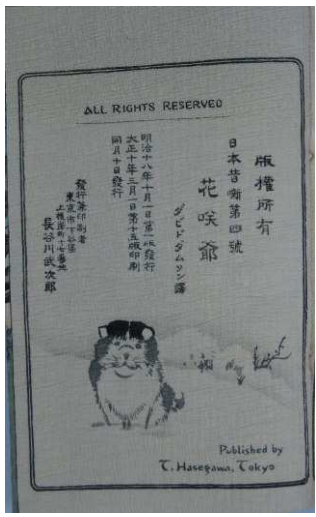 ALL RIGHTS RESERVED
版權所有
日本昔噺第四號
花咲爺
ダビド タムソン譯
明治十八年十月一日第一版發行
大正十年三月一日第十五版印刷
同月十日發行
發行兼印刷者
東京市下谷區
上根岸町十七番地
長谷川武次郎
Published by
T. Hasegawa, Tokyo